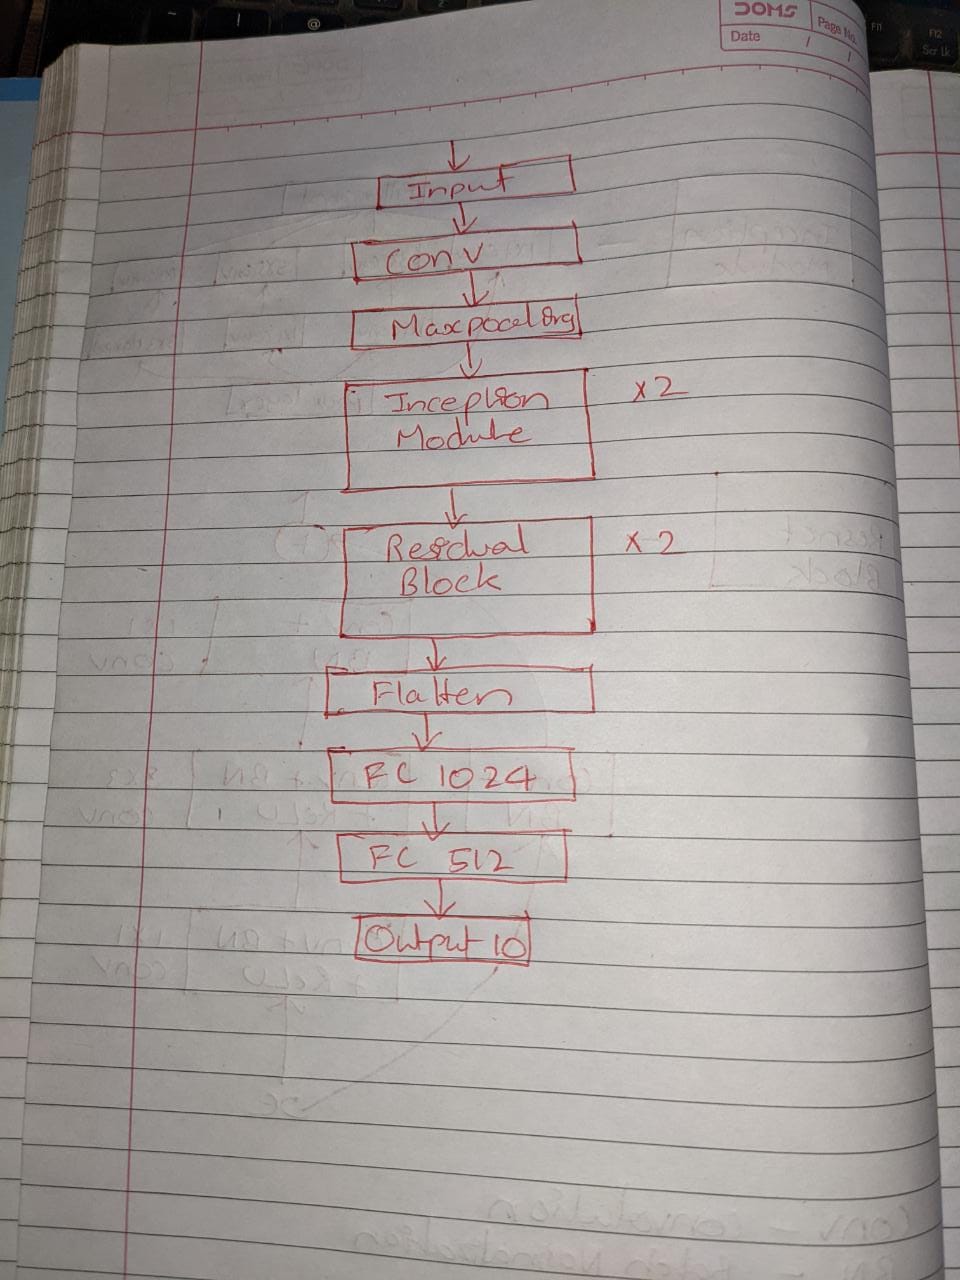 DOMS
Page No.
Date / /
F11
F12
Scr Lk
@
Input
Conv
Maxpooling
Inception
Module
x2
Residual
Block
x2
Flatten
FC 1024
FC 512
Output 10